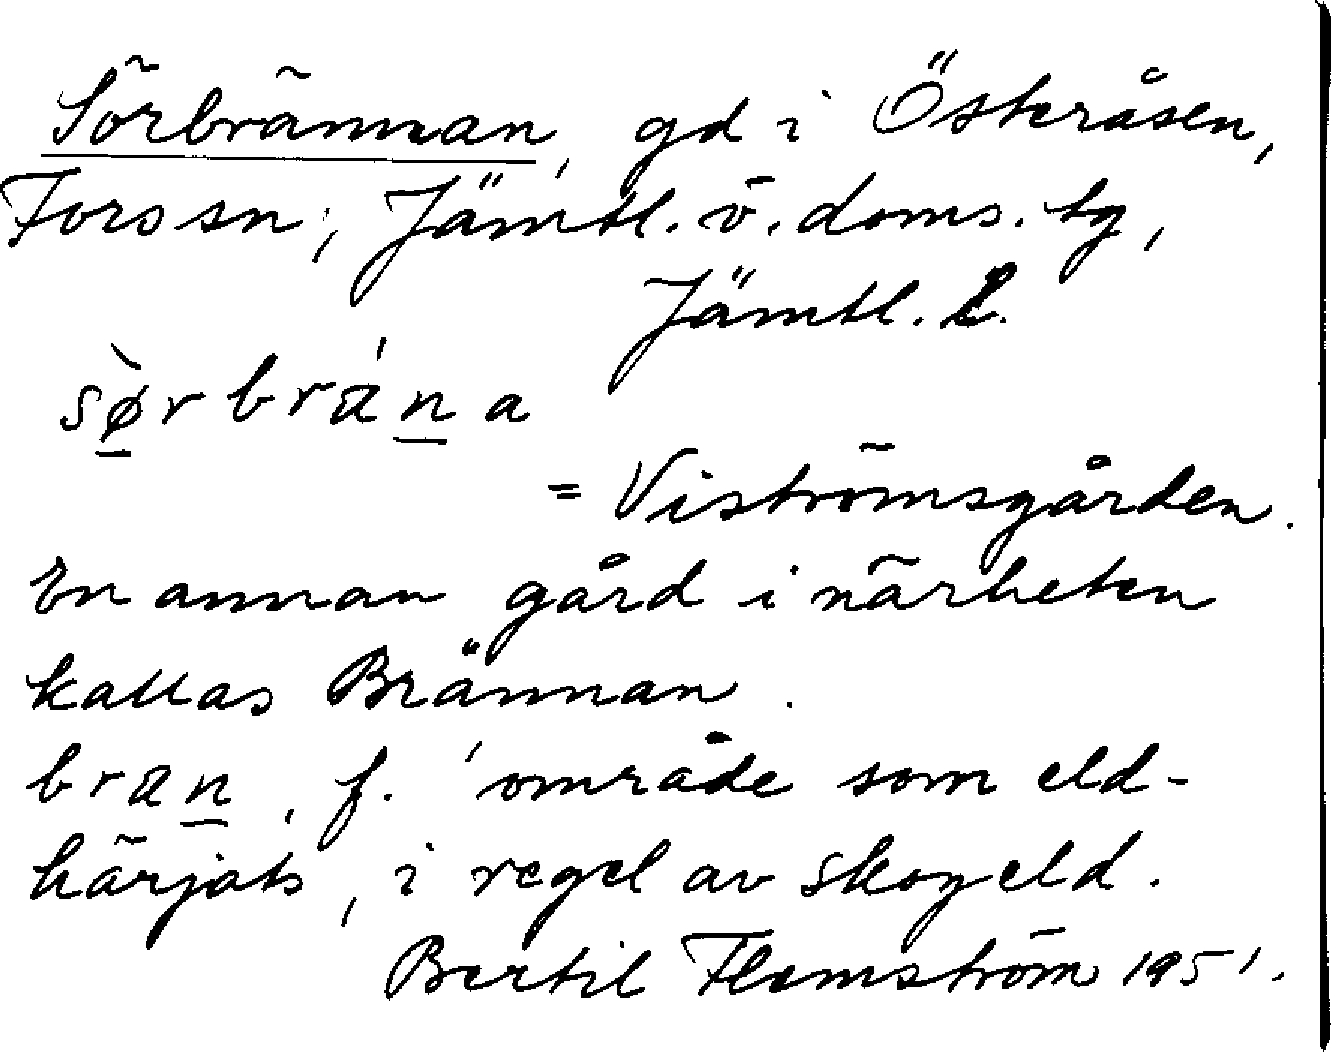 Sörbrännan, gd i Österåsen,
Fors sn, Jämtl. ö. doms. tg,
Jämtl. l.
sø̀rbrána
= Viströmsgården.
En annan gård i närheten
kallas Brännan.
bran, f. 'område som eld-
härjats', i regel av skogeld.
Bertil Flemström 1951.